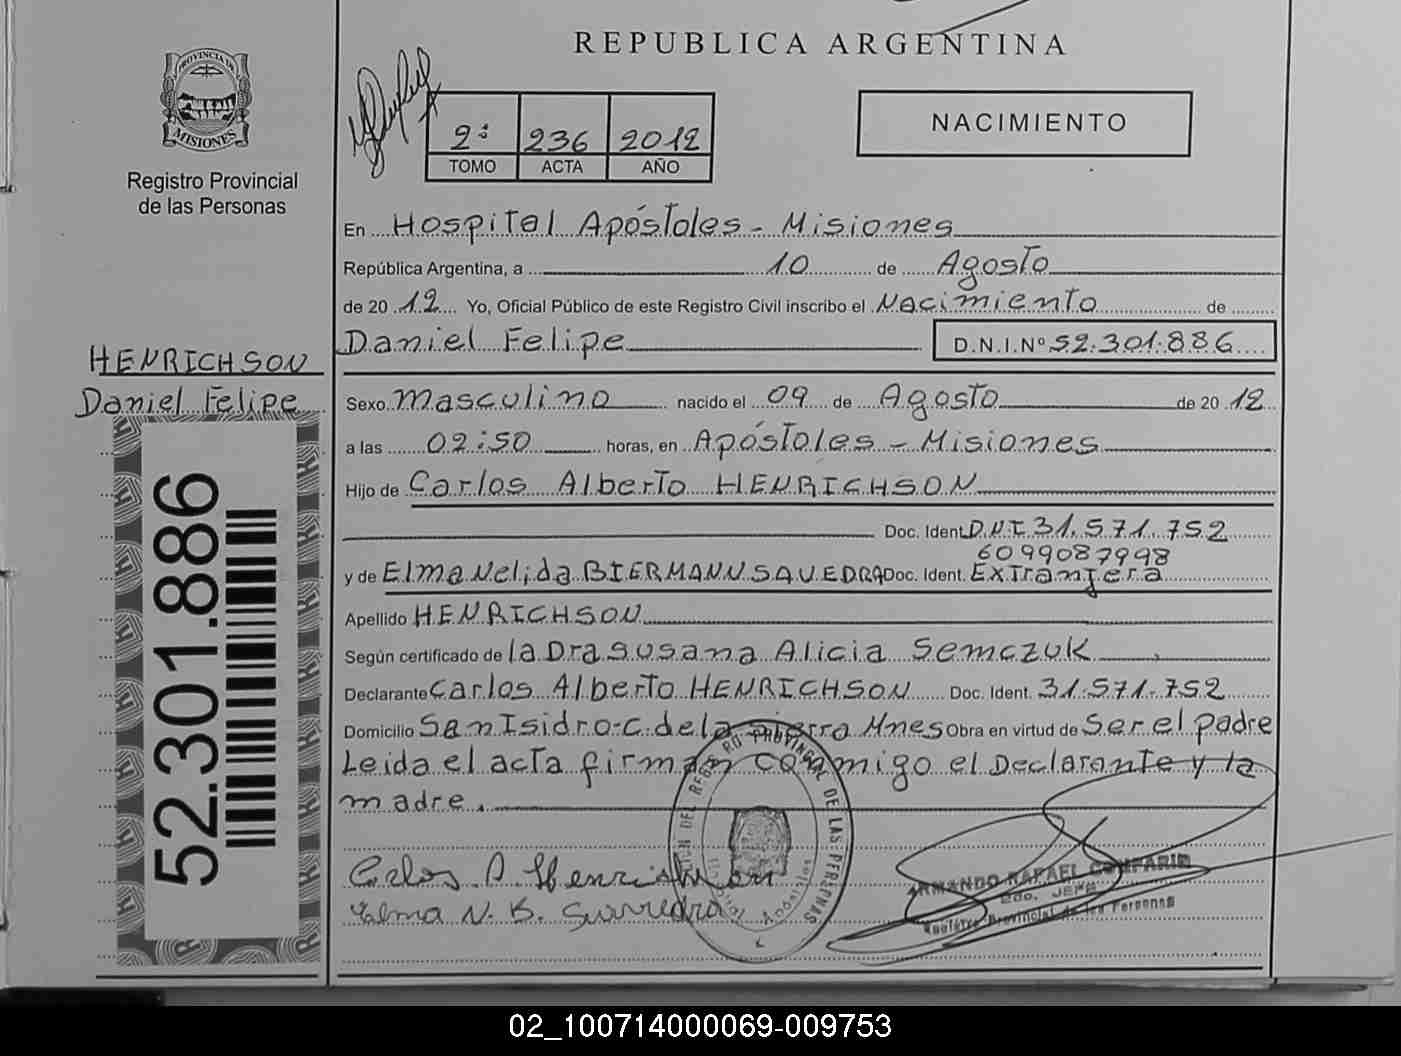 REPUBLICA ARGENTINA
PROVINCIA DE
MISIONES
Registro Provincial
de las Personas
2ª 236 2012
TOMO ACTA AÑO
NACIMIENTO
En Hospital Apóstoles - Misiones
República Argentina, a 10 de Agosto
de 20 12 Yo, Oficial Público de este Registro Civil inscribo el Nacimiento de
Daniel Felipe D.N.I.Nº 52.301.886
HENRICHSON
Daniel Felipe
52.301.886
Sexo Masculino nacido el 09 de Agosto de 20 12
a las 02:50 horas, en Apóstoles - Misiones
Hijo de Carlos Alberto HENRICHSON
Doc. Ident. D.N.I. 31.571.752
6099087998
y de Elma Nelida BIERMANN SAVEDRA Doc. Ident. Extranjera
Apellido HENRICHSON
Según certificado de la Dra Susana Alicia Semczuk
Declarante Carlos Alberto HENRICHSON Doc. Ident. 31.571.752
Domicilio San Isidro - C. de la Sierra Mnes Obra en virtud de Ser el padre
Leida el acta firman conmigo el Declarante y la
madre.
Carlos A. Henrichson
Elma N. B. Savedra
PROVINCIAL DE LAS PERSONAS
ARMANDO RAFAEL
2do. JEFE
Registro Provincial de las Personas
02_100714000069-009753